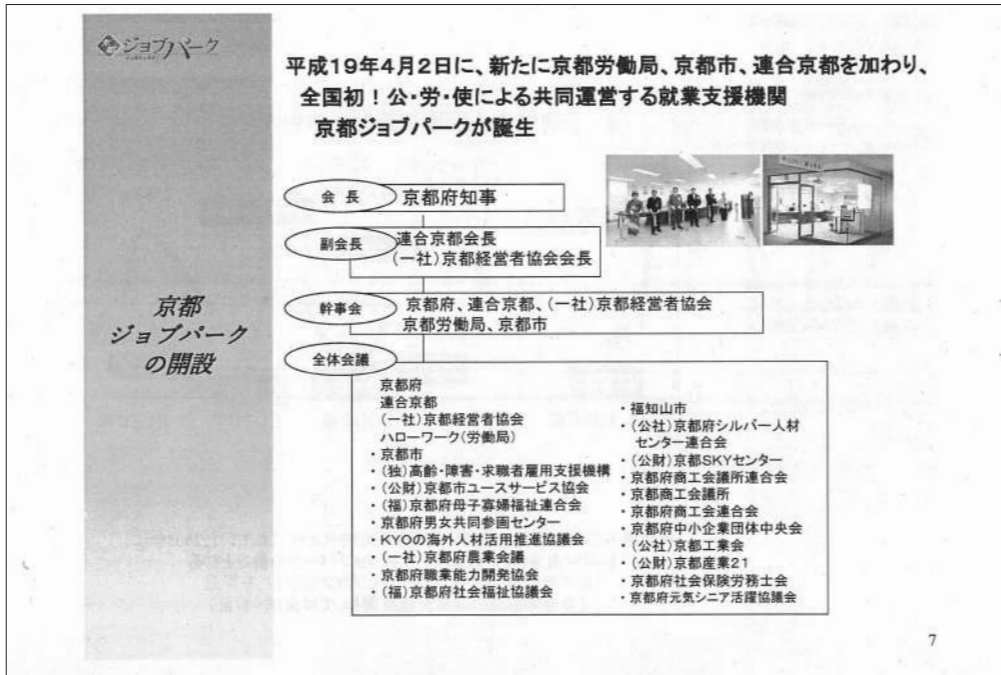 ジョブパーク
平成19年4月2日に、新たに京都労働局、京都市、連合京都を加わり、
全国初！公・労・使による共同運営する就業支援機関
京都ジョブパークが誕生
京都
ジョブパーク
の開設
会長
京都府知事
副会長
連合京都会長
(一社)京都経営者協会会長
幹事会
京都府、連合京都、(一社)京都経営者協会
京都労働局、京都市
全体会議
京都府
連合京都
(一社)京都経営者協会
ハローワーク(労働局)
・京都市
・(独)高齢・障害・求職者雇用支援機構
・(公財)京都市ユースサービス協会
・(福)京都府母子寡婦福祉連合会
・京都府男女共同参画センター
・KYOの海外人材活用推進協議会
・(一社)京都府農業会議
・京都府職業能力開発協会
・(福)京都府社会福祉協議会
・福知山市
・(公社)京都府シルバー人材
センター連合会
・(公財)京都SKYセンター
・京都府商工会議所連合会
・京都商工会議所
・京都府商工会連合会
・京都府中小企業団体中央会
・(公社)京都工業会
・(公財)京都産業21
・京都府社会保険労務士会
・京都府元気シニア活躍協議会
7